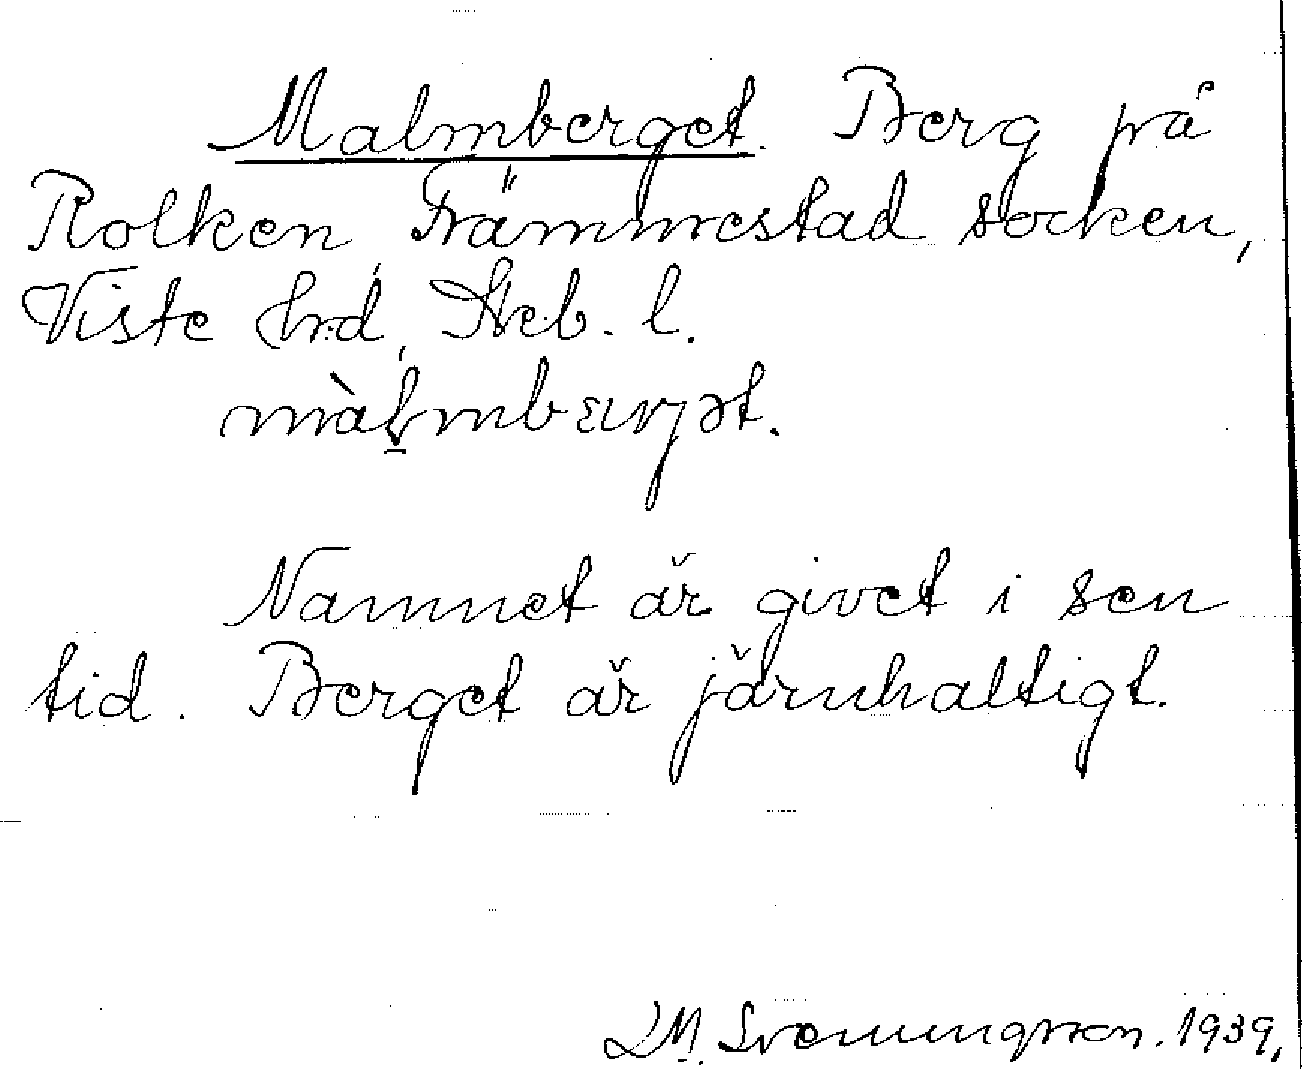 Malmberget. Berg på
Rolken, Främmestad socken,
Viste hd, Skcb. l.
màl̠mbærjət.
Namnet är givet i sen
tid. Berget är järnhaltigt.
D.M. Svenningsson. 1939.